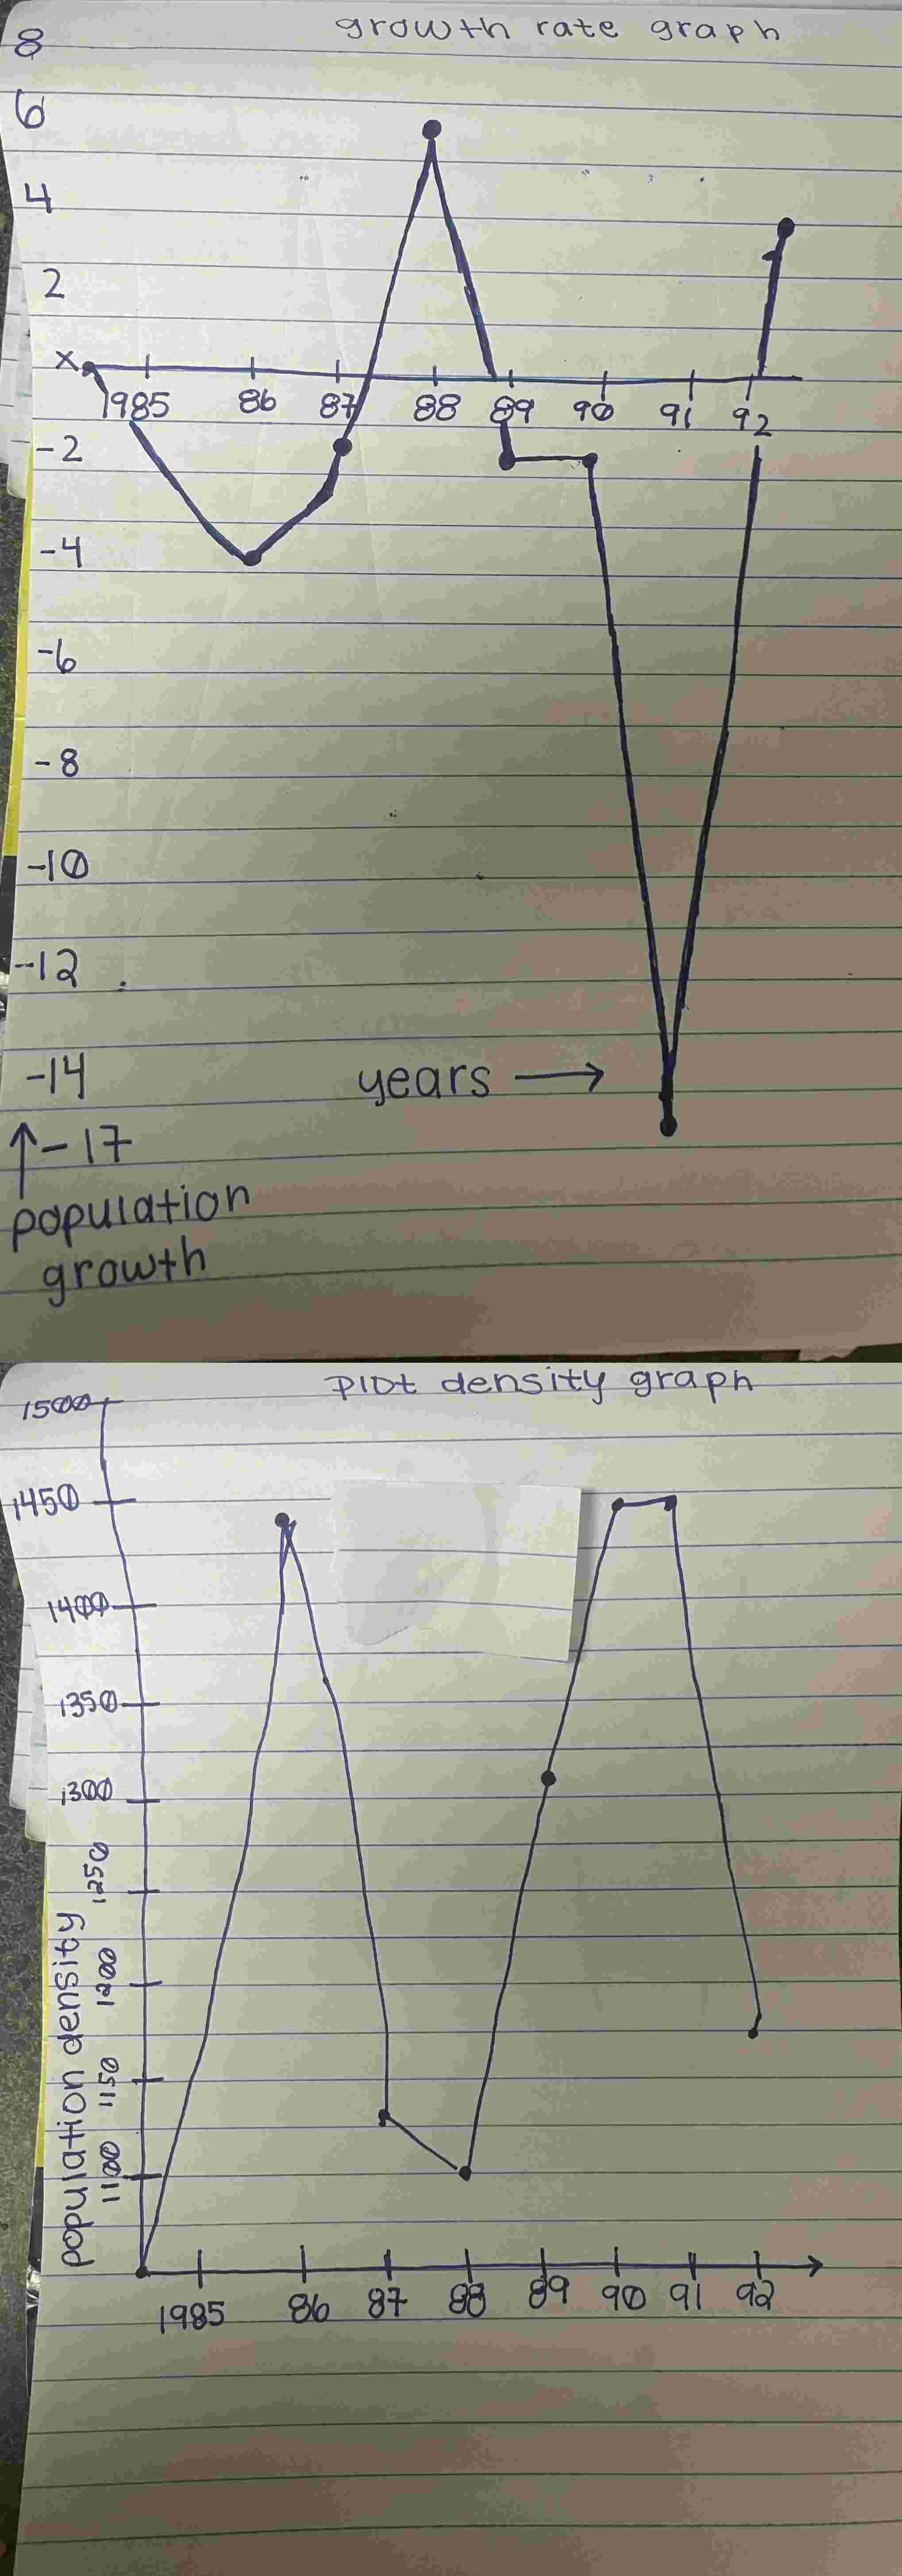 growth rate graph
8
6
4
2
x
1985 86 87 88 89 90 91 92
-2
-4
-6
-8
-10
-12
-14
years →
↑ -17
population
growth
Plot density graph
1500
1450
1400
1350
1300
1250
1200
1150
1100
population density
1985 86 87 88 89 90 91 92